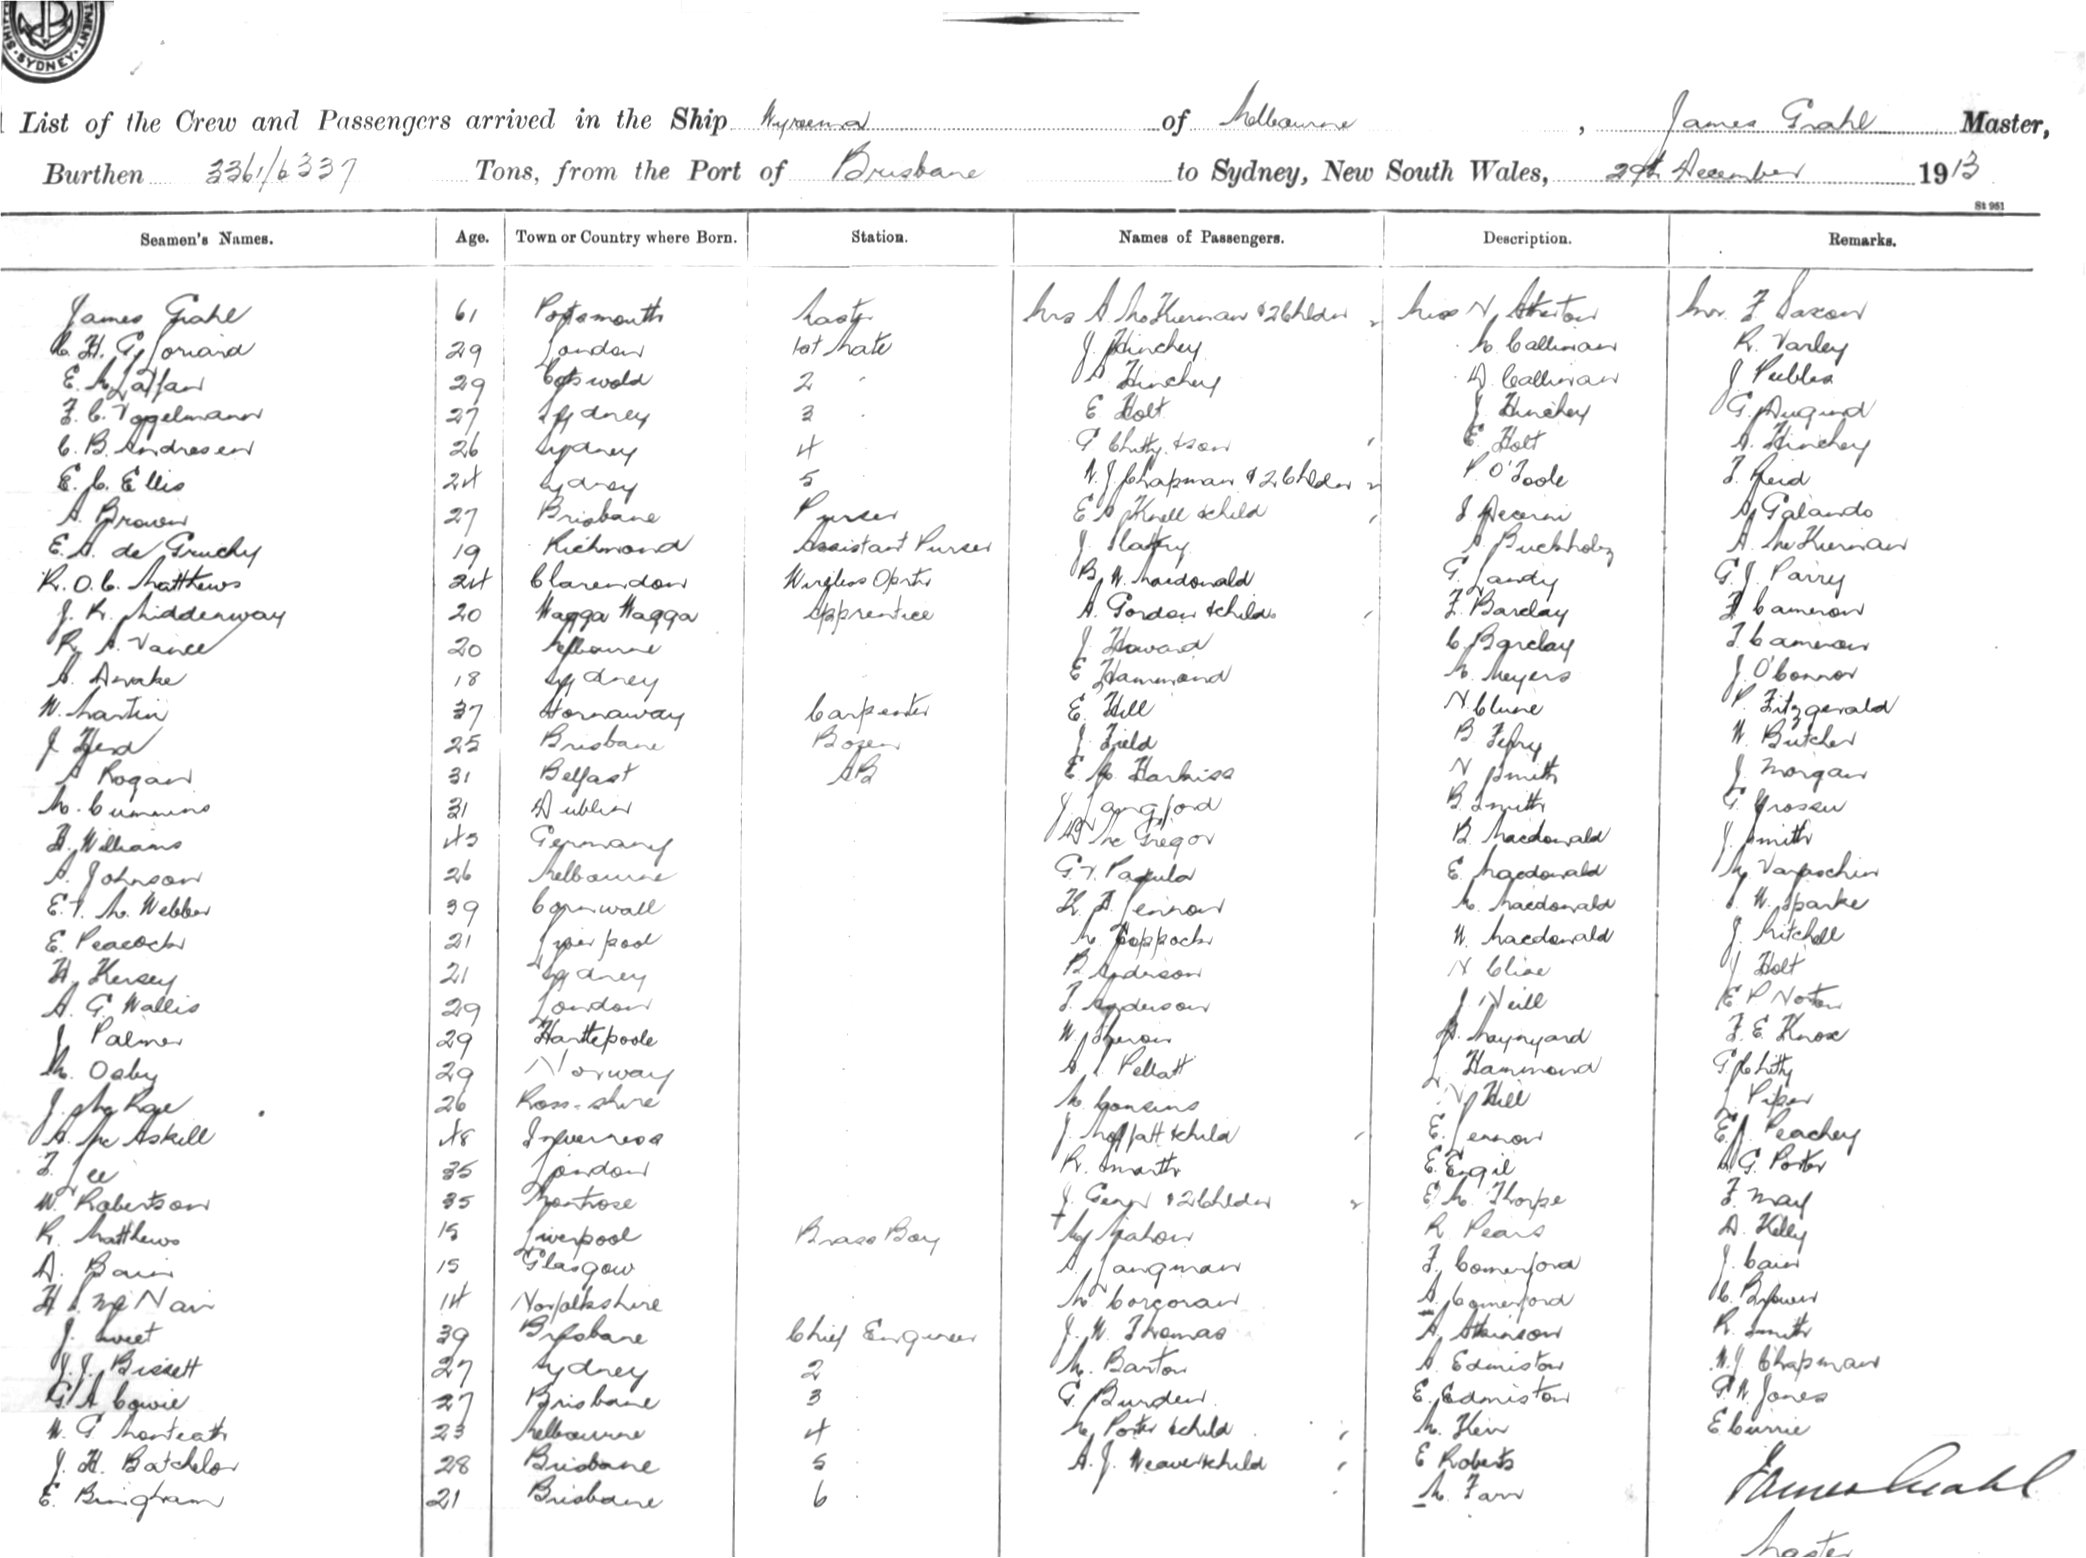 SYDNEY
List of the Crew and Passengers arrived in the Ship Wyreema of Melbourne, James Grahl Master,
Burthen 3361/6337 Tons, from the Port of Brisbane to Sydney, New South Wales, 29th December 1913
St 951
Seamen's Names. Age. Town or Country where Born. Station. Names of Passengers. Description. Remarks.
James Grahl 61 Portsmouth Master Mrs A. McKiernan & 2 Childen 2 Miss N Atherton Mr. F Saxon
C. H. G. 29 London 1st Mate J Hinchey M Callinan R. Varley
E. M. Laffan 29 Cotswold 2 A Hinchey D. Callinan J Peebles
F. C. Voggelmann 27 Sydney 3 E Holt J Hinchey G.
C. B. Andresen 26 Sydney 4 G Chitty & son E Holt A. Hinchey
E. C. Ellis 24 Sydney 5 W. J. Chapman & 2 Childen 2 P O'Toole T. Reid
A. Brown 27 Brisbane Purser E A Knell & child A Galando
E. A. de Gruchy 19 Richmond Assistant Purser J. Slattery A Buckholz A. McKiernan
R. O. C. Matthews 24 Clarendon Wireless Opertr B. W. Macdonald G. Landy G. J. Parry
J. R. Middenway 20 Wagga Wagga Apprentice A. Gordon & child F. Barclay F Cameron
R. A. Vance 20 Melbourne J. Howard C. Barclay T. Cameron
A. Drake 18 Sydney E Hammond M. Meyers J. O'Connor
W. Martin 37 Stornaway Carpenter E. Hill N. Clune P. Fitzgerald
J Herd 25 Brisbane Bosen J. Field B W. Butcher
A Rogan 31 Belfast AB E. M. Harkiss N Smith J. Morgan
M. Cummins 31 Dublin J Langford B. Smith G.
H. Williams 45 Germany D McGregor B. Macdonald J. Smith
A. Johnson 26 Melbourne G. E. Macdonald M
E. T. M. Webber 39 Cornwall K. A. Lennon M. Macdonald W. Sparke
E. Peacock 21 Liverpool M. Coppock W. Macdonald J. Mitchell
H. Kersey 21 Sydney B Anderson N Cline J Holt
A. G. Wallis 29 London T. Anderson J Neill E P Norton
J Palmer 29 Hartlepoole W. A. Maynyard F. E. Knox
M. Osby 29 Norway A. L Pellatt L Hammond G. Chitty
J. McRae 26 Ross-shire M Cousins V Hill L Piper
A. McAskill 48 Inverness J. Moffatt & child E. Lennon E. J. Peachey
F. Lee 35 London R. Smarth E. Engil A G. Porter
W. Robertson 35 Montrose J. & 2 Childen 2 E M. Thorpe F May
R. Matthews 15 Liverpool Brass Boy M Mahon R Pears A. Kelly
A. Bain 15 Glasgow A. Langman F. Comerford J. Cain
H. McNair 14 Norfolkshire M. Corcoran A. Comerford C. Brown
J. Sweet 39 Brisbane Chief Engineer J. W. Thomas A. Atkinson R. Smith
J. J. Bissett 27 Sydney 2 M. Barton A. Edmiston W. J. Chapman
G. A Cowie 27 Brisbane 3 G. Burden E. Edmiston G. W. Jones
W. G Monteath 23 Melbourne 4 M Porter & child M. Keir E Currie
J. H. Batchelor 28 Brisbane 5 A. J. Weaver & child E Roberts
E. Bingham 21 Brisbane 6 M. Farr James Grahl
Master